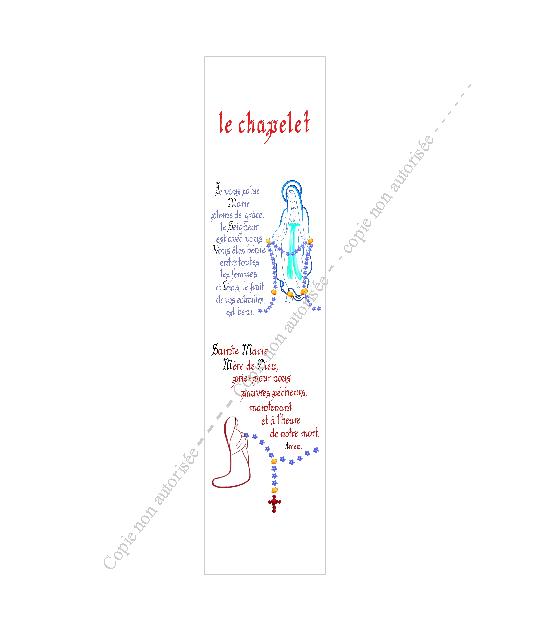 le chapelet
Je vous salue
Marie
pleine de grâce,
le Seigneur
est avec vous
Vous êtes bénie
entre toutes
les femmes
et Jésus, le fruit
de vos entrailles
est béni.
Sainte Marie,
Mère de Dieu,
priez pour nous
pauvres pécheurs,
maintenant
et à l'heure
de notre mort.
Amen.
Copie non autorisée -- Copie non autorisée -- copie non autorisée